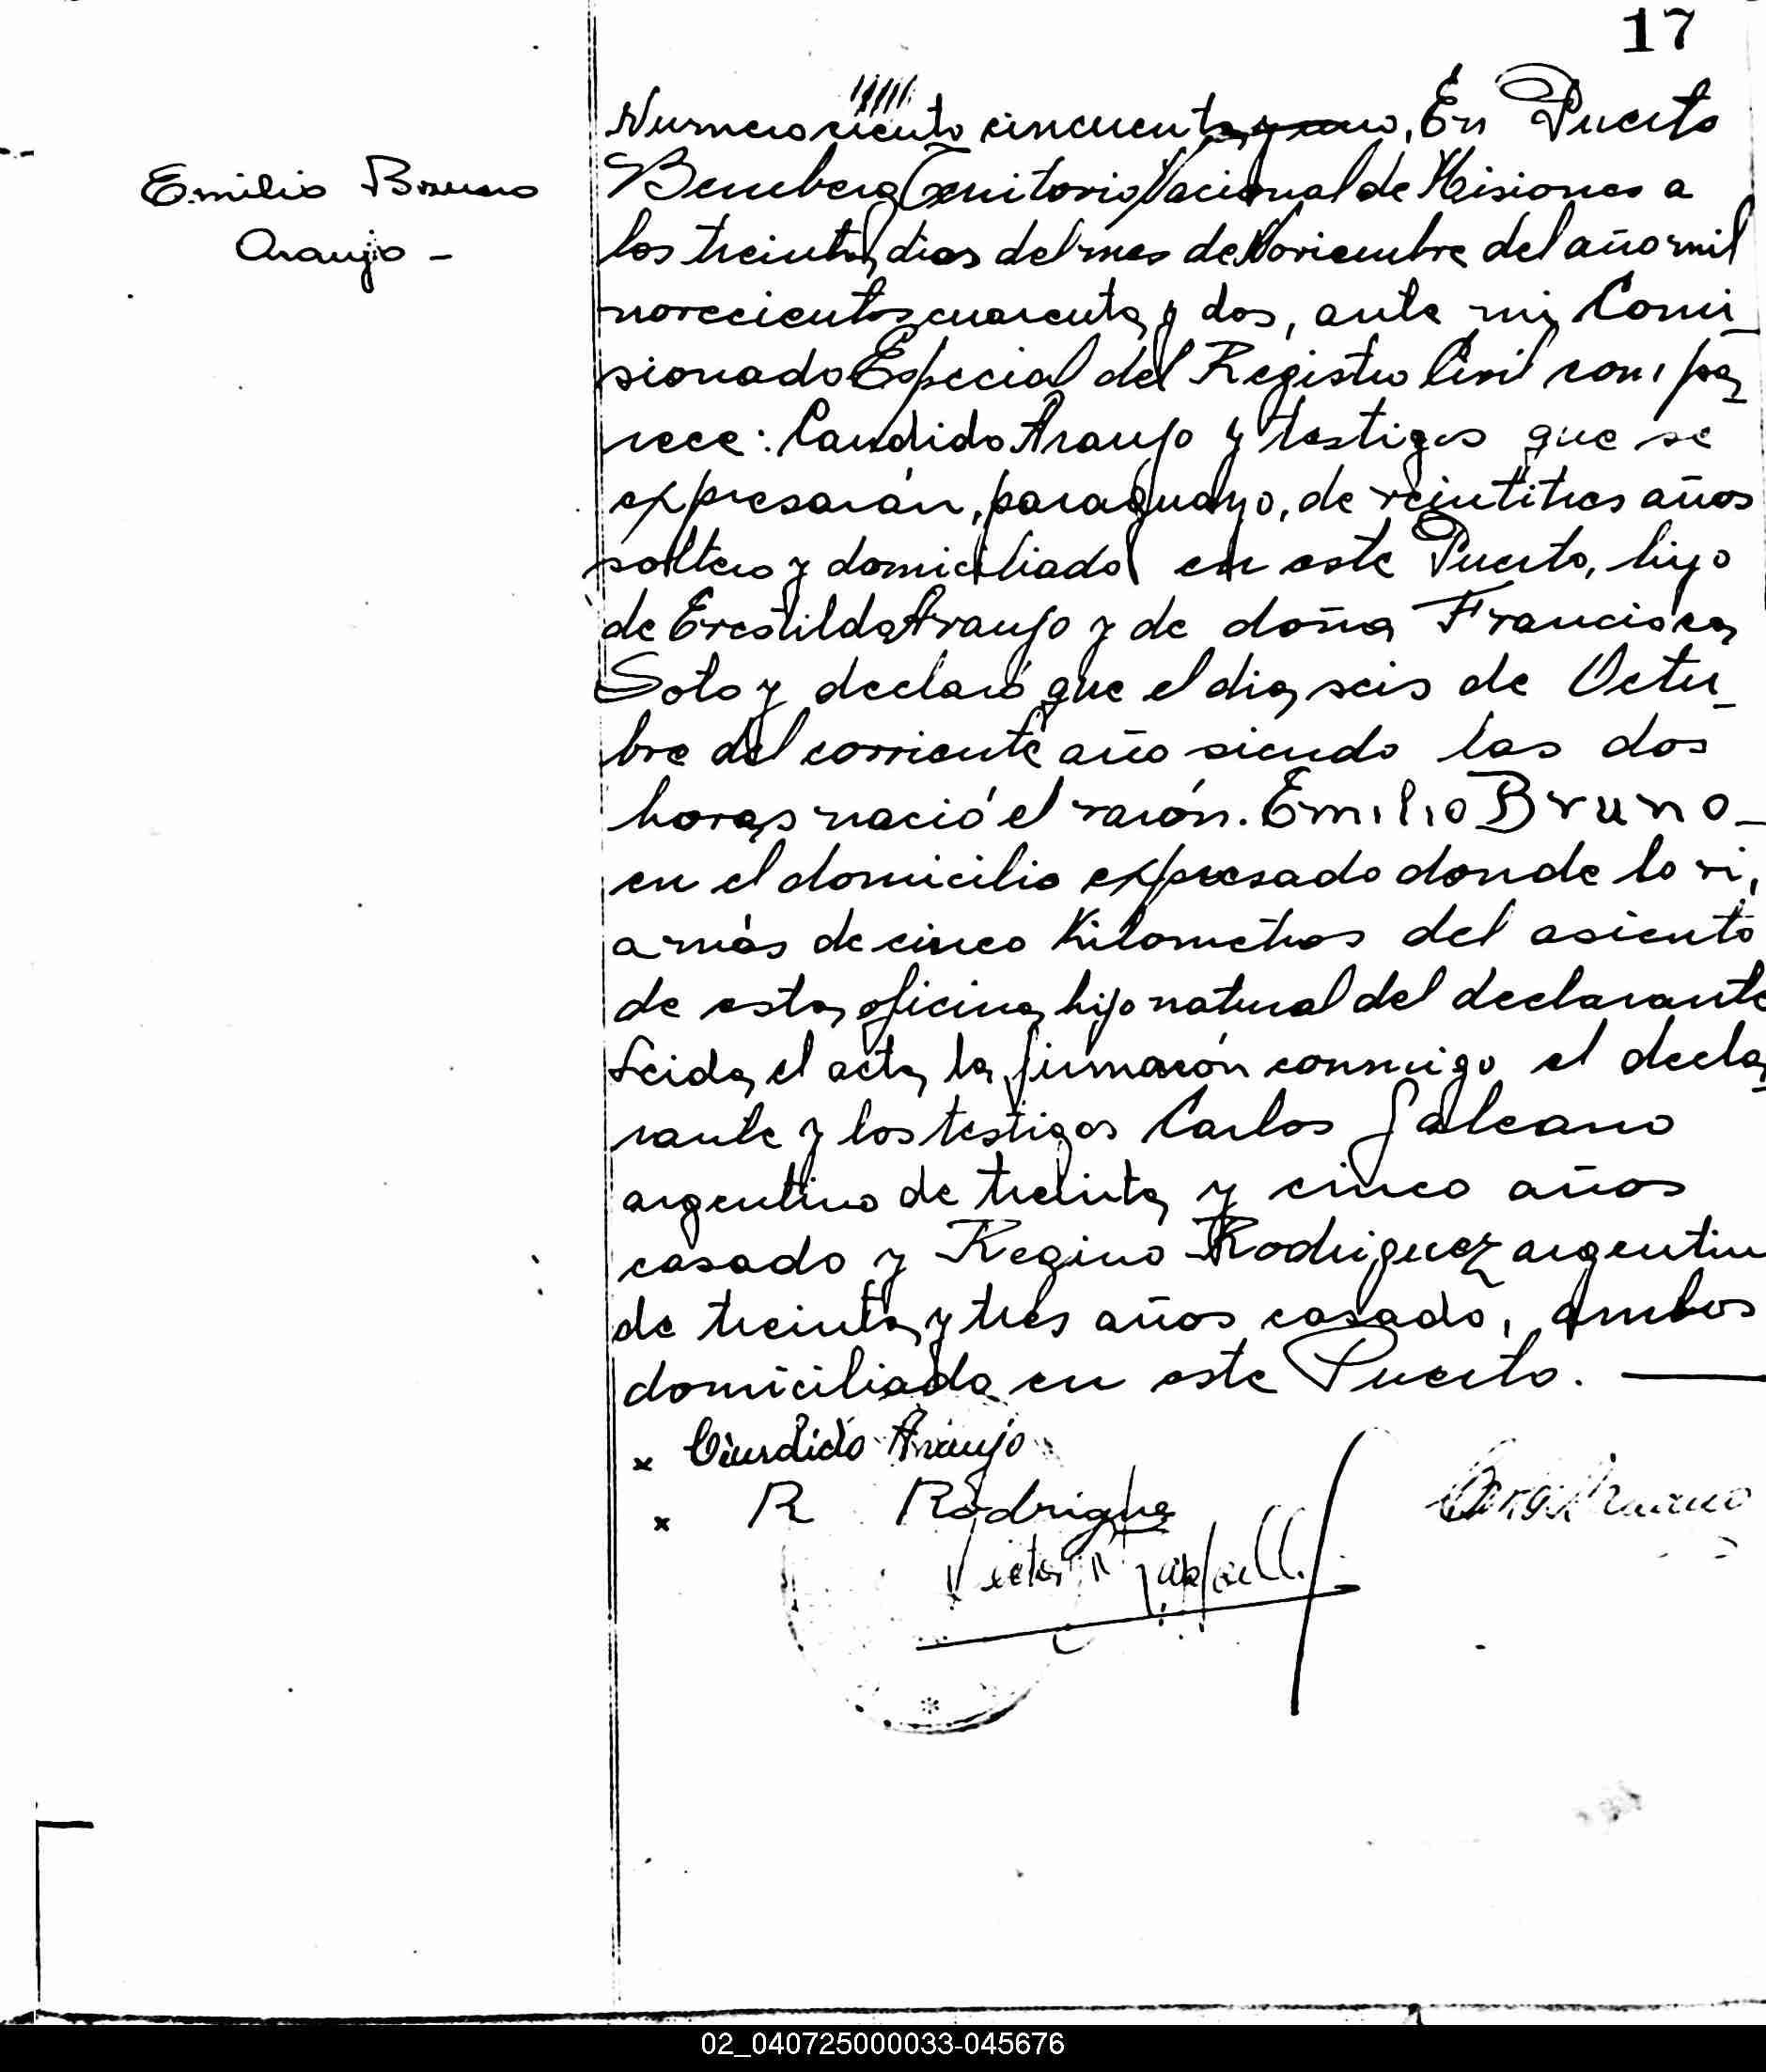 17
Emilio Bruno
Araujo -
Numero ciento cincuenta y uno, En Puerto
Bemberg Territorio Nacional de Misiones a
los treinta dias del mes de Noviembre del año mil
novecientos cuarenta y dos, ante mi, Comi_
sionado Especial del Registro Civil compa_
rece: Candido Araujo y testigos que se
expresarán, paraguayo, de veintitres años
soltero y domiciliado en este Puerto, hijo
de Erestilda Araujo y de doña Francisca
Soto y declaró que el dia seis de Octu_
bre del corriente año siendo las dos
horas nació el varón. Emilio Bruno_
en el domicilio expresado donde lo vi,
a más de cinco Kilometros del asiento
de esta oficina, hijo natural del declarante
Leida el acta la firmarón conmigo el decla_
rante y los testigos Carlos Galeano
argentino de treinta y cinco años
casado y Regino Rodriguez argentin
de treinta y tres años casado, ambos
domiciliado en este Puerto. —
x Candido Araujo
x R Rodrigue
Victor
02_040725000033-045676